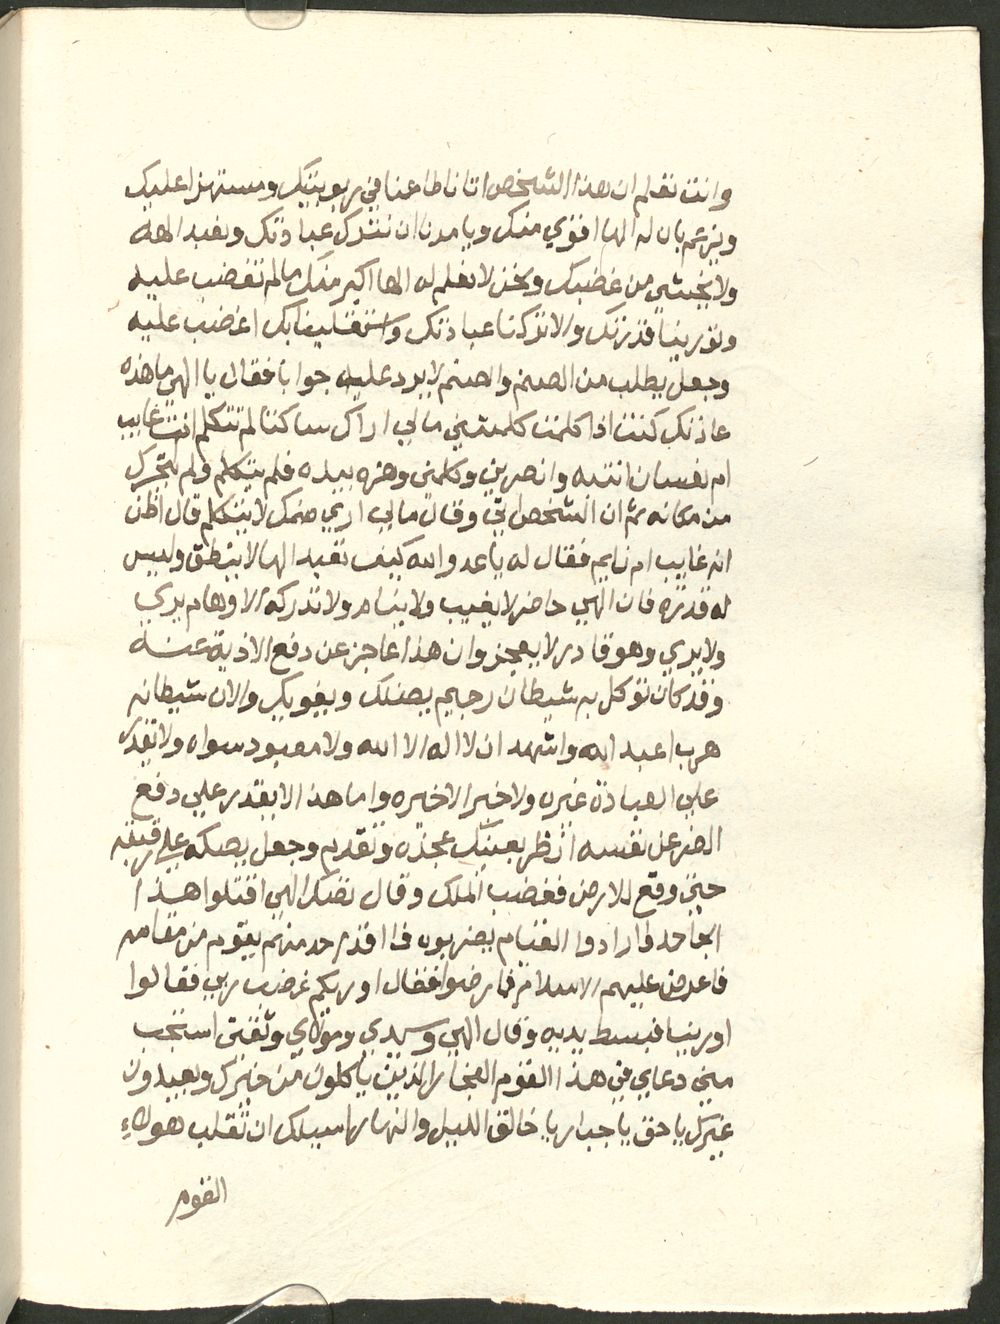 وانت تعلم ان هذا الشخص اتانا طاعنا في ربوبيتك ومستهزا عليك
ويزعم بان له الها اقوي منك ويامرنا ان نترك عبادتك ونعبد الهه
ولا يخشي من غضبك ونحن لا نعلم له الها اكبر منك مالم تغضب عليه
وتورينا قدرتك والا تركنا عبادتك اغضب عليه
وجعل يطلب من الصنم والصنم لا يرد عليه جوابا فقال يا الهي ما هذه
عادتك كنت اذا كلمتك كلمتني مالي اراك ساكنا لم تتكلم انت غايب
ام نعسان انتبه وانصرني وكلمني وهزه بيده فلم يتكلم ولم يتحرك
من مكانه ثم ان الشخص اتي وقال مالي اري صنمك لا يتكلم قال اظن
انه غايب ام نايم فقال له يا عدو الله كيف تعبد الها لا ينطق وليس
له قدره فان الهي حاضر لا يغيب ولا ينام ولا تدركه الاوهام يري
ولا يري وهو قادر لا يعجز وان هذا عاجز عن دفع الاذية عنه
وقد كان توكل به شيطان رجيم يضلك ويغويك والان شيطانه
هرب اعبد الله واشهد ان لا اله الا الله ولا معبود سواه ولا تقدر
علي العبادة غيره ولا خير الا خيره واما هذا لا يقدر علي دفع
الضر عن نفسه انظر بعينك عجزه وتقدم وجعل يصكه علي رقبته
حتي وقع للارض فغضب الملك وقال تضك الهي اقتلوا هذا
الجاحد فارادوا القيام يضربوه فما اقدر حد منهم يقوم من مقامه
فاعرض عليهم الاسلام فما رضوا فقال اوريكم غضب ربي فقالوا
اورينا فبسط يديه وقال الهي وسيدي ومولاي وثقتي استجب
مني دعاي في هذا القوم الفجار الذين ياكلون من خيرك ويعبدون
غيرك يا حق يا جبار يا خالق الليل والنهار اسيلك ان تقلب هولاء
القوم